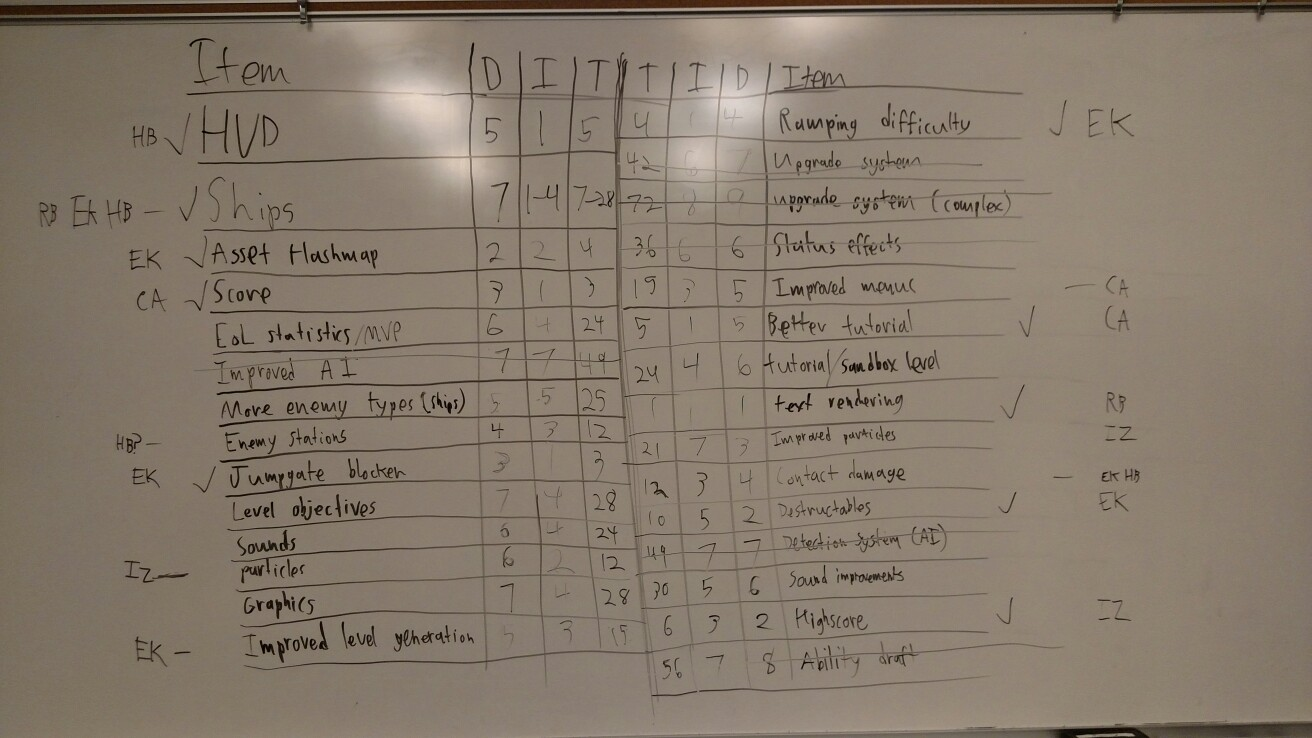 Item D I T
HB ✓ HVD 5 1 5
RB EK HB – ✓ Ships 7 1-4 7-28
EK ✓ Asset Hashmap 2 2 4
CA ✓ Score 3 1 3
EoL statistics/MVP 6 4 24
Improved AI 7 7 49
More enemy types (ships) 5 5 25
HB? – Enemy stations 4 3 12
EK ✓ Jumpgate blocker 3 1 3
Level objectives 7 4 28
Sounds 6 4 24
IZ — particles 6 2 12
Graphics 7 4 28
EK – Improved level generation 5 3 15
T I D Item
4 1 4 Ramping difficulty ✓ EK
42 6 7 Upgrade system
72 8 9 upgrade system (complex)
36 6 6 Status effects
15 3 5 Improved menus – CA
5 1 5 Better tutorial ✓ CA
24 4 6 tutorial/sandbox level
1 1 1 text rendering ✓ RB
21 7 3 Improved particles IZ
12 3 4 Contact damage – EK HB
10 5 2 Destructables ✓ EK
49 7 7 Detection system (AI)
30 5 6 Sound improvements
6 3 2 Highscore ✓ IZ
56 7 8 Ability draft